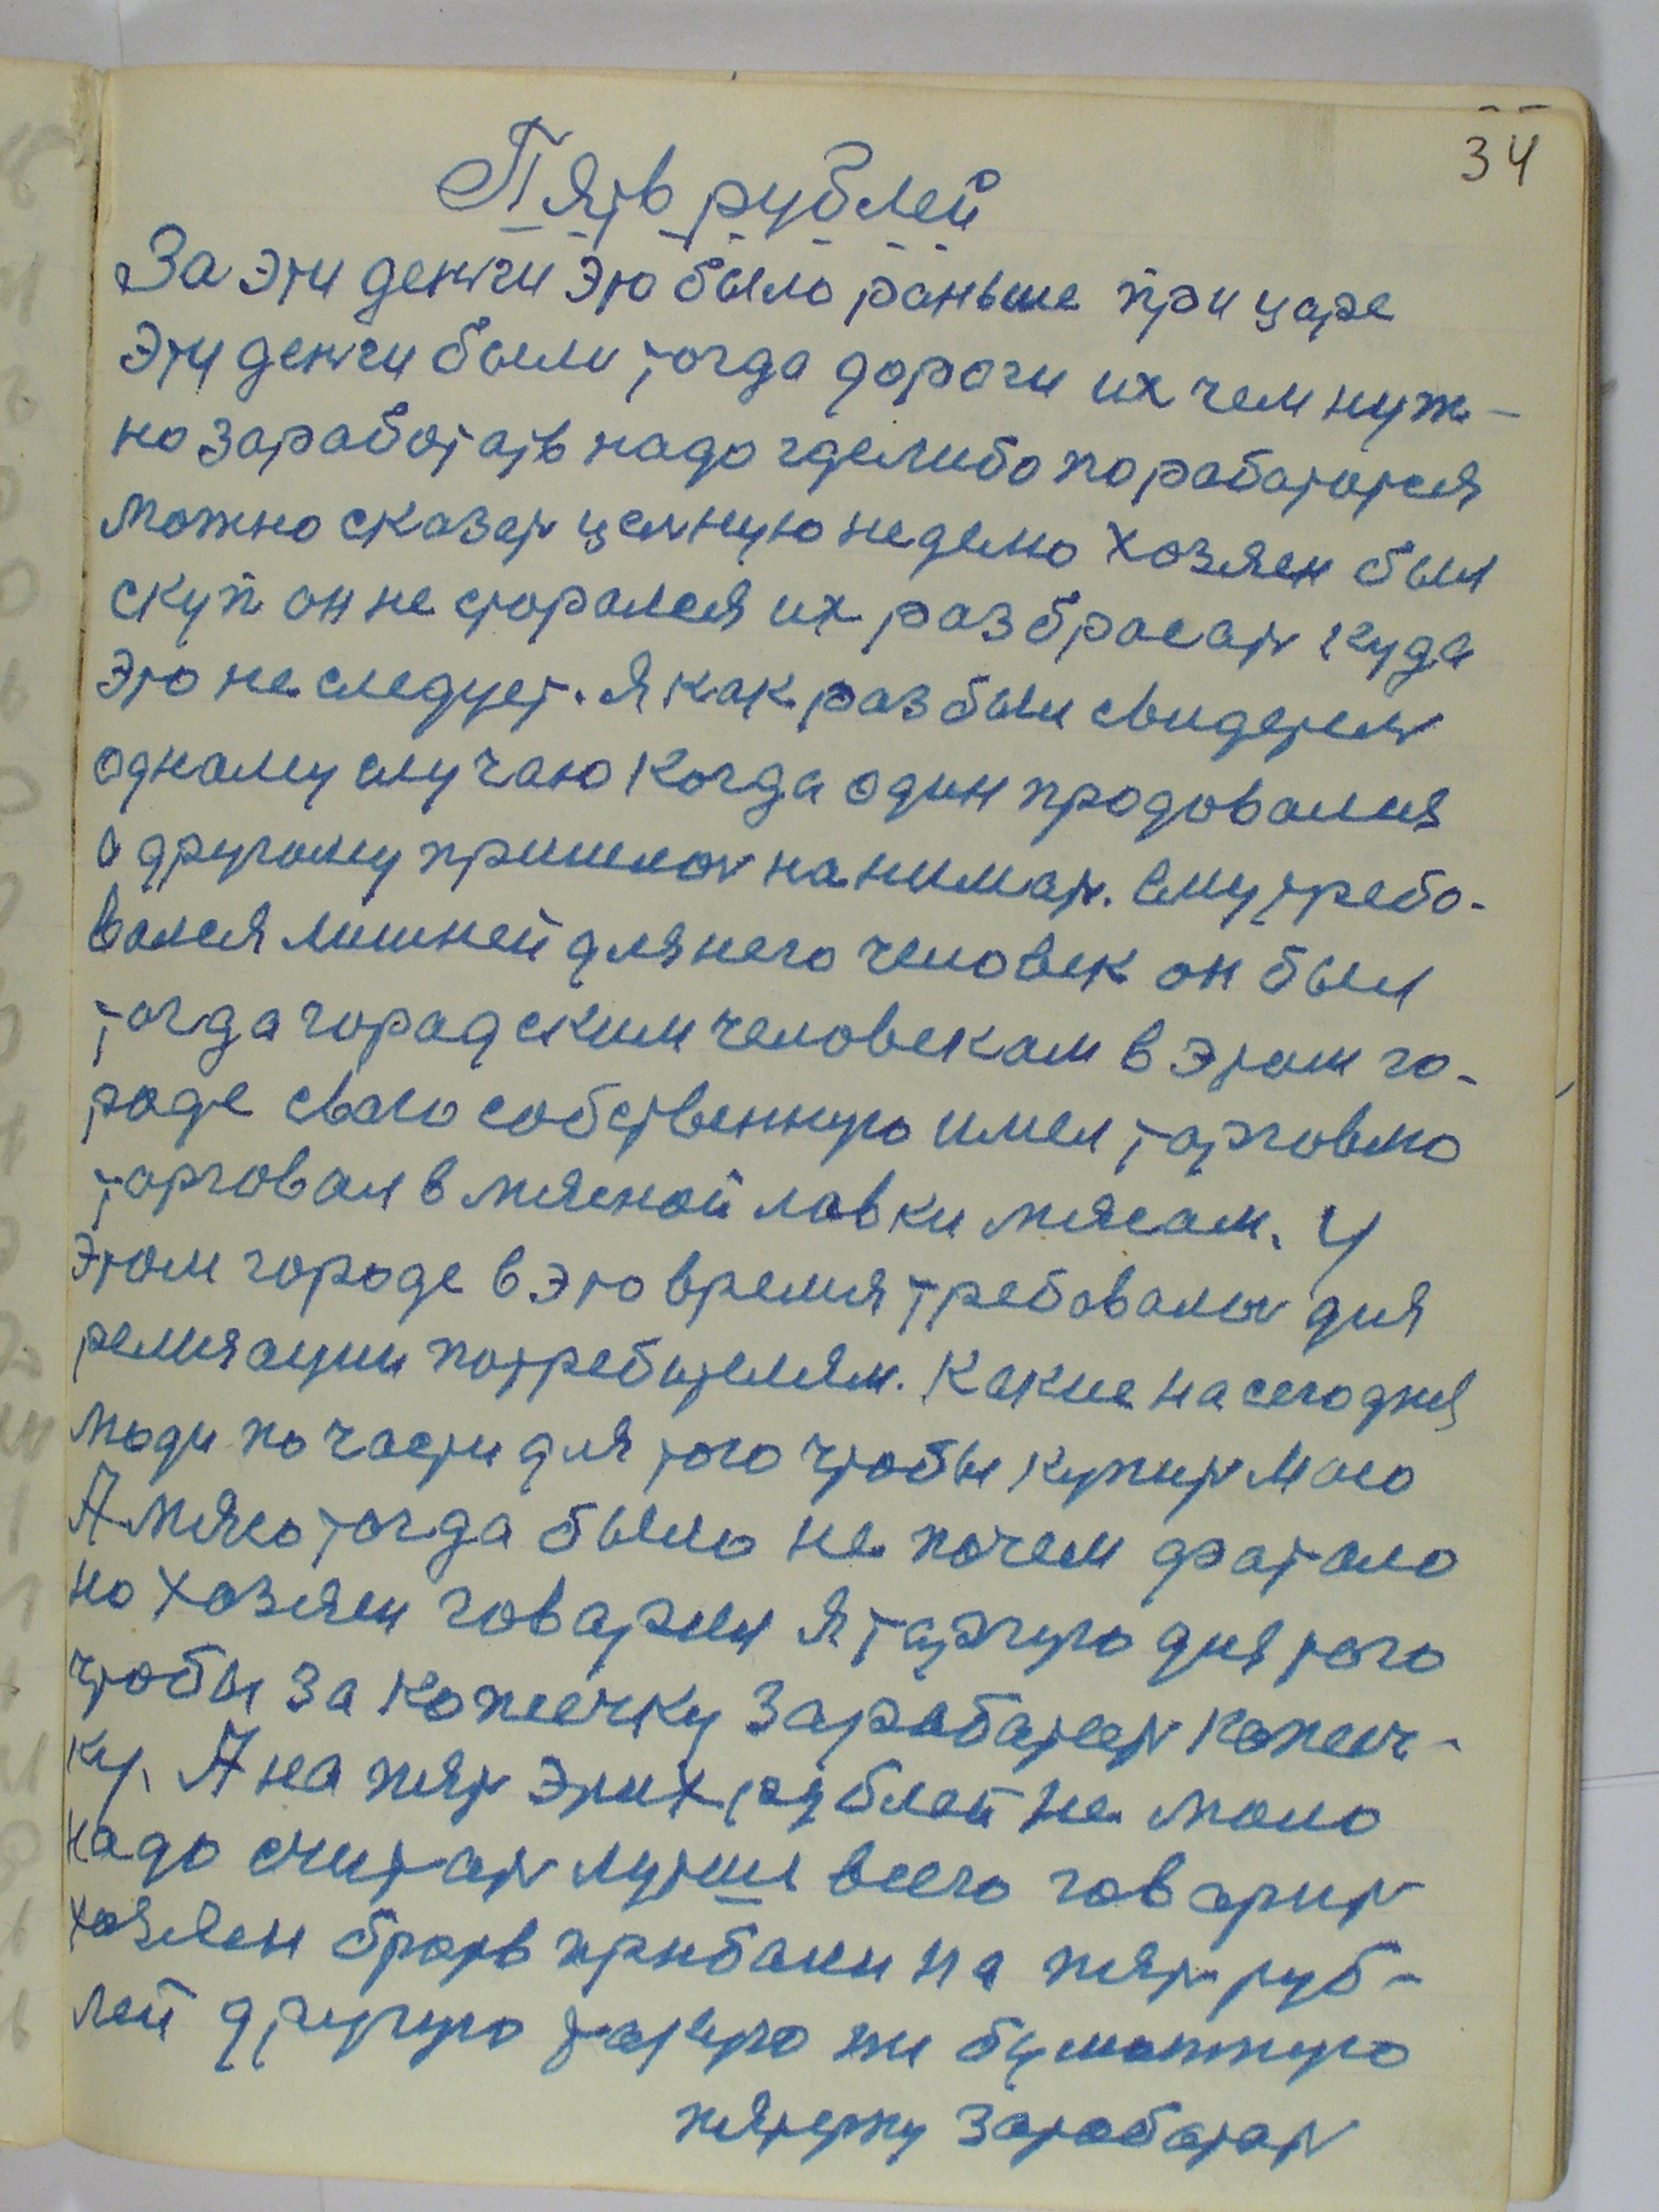 34
Пять рублей
За эти деньги это было раньше при царе
эти деньги были тогда дороги их чем нуж-
но заработать надо где либо порабататся
можно сказать цельную неделю хозяен был
скуп он не старался их разбрасать куда
это не следует. Я как раз был свидетель
аднаму случаю когда один продовался
а другому пришлось нанимать. Ему требо-
вался лишней для него человек он был
тогда горадским человекам в этом го-
роде сваю собственную имел тарговлю
тарговал в мясной лавки мясам. У
этом городе в это время требовалось для
релизации потребителям. Какие на сегодня
люди по части для того чтобы купить мясо
А мясо тогда было не почем фатало
но хозяен говарил я таргую для того
чтобы за копеечку зарабатать копееч-
ку. А на пять этих рублей не мало
надо считать лутше всего говарить
хозяен брать прибали на пять руб-
лей другую такую же бумажную
пятерку зарабатать